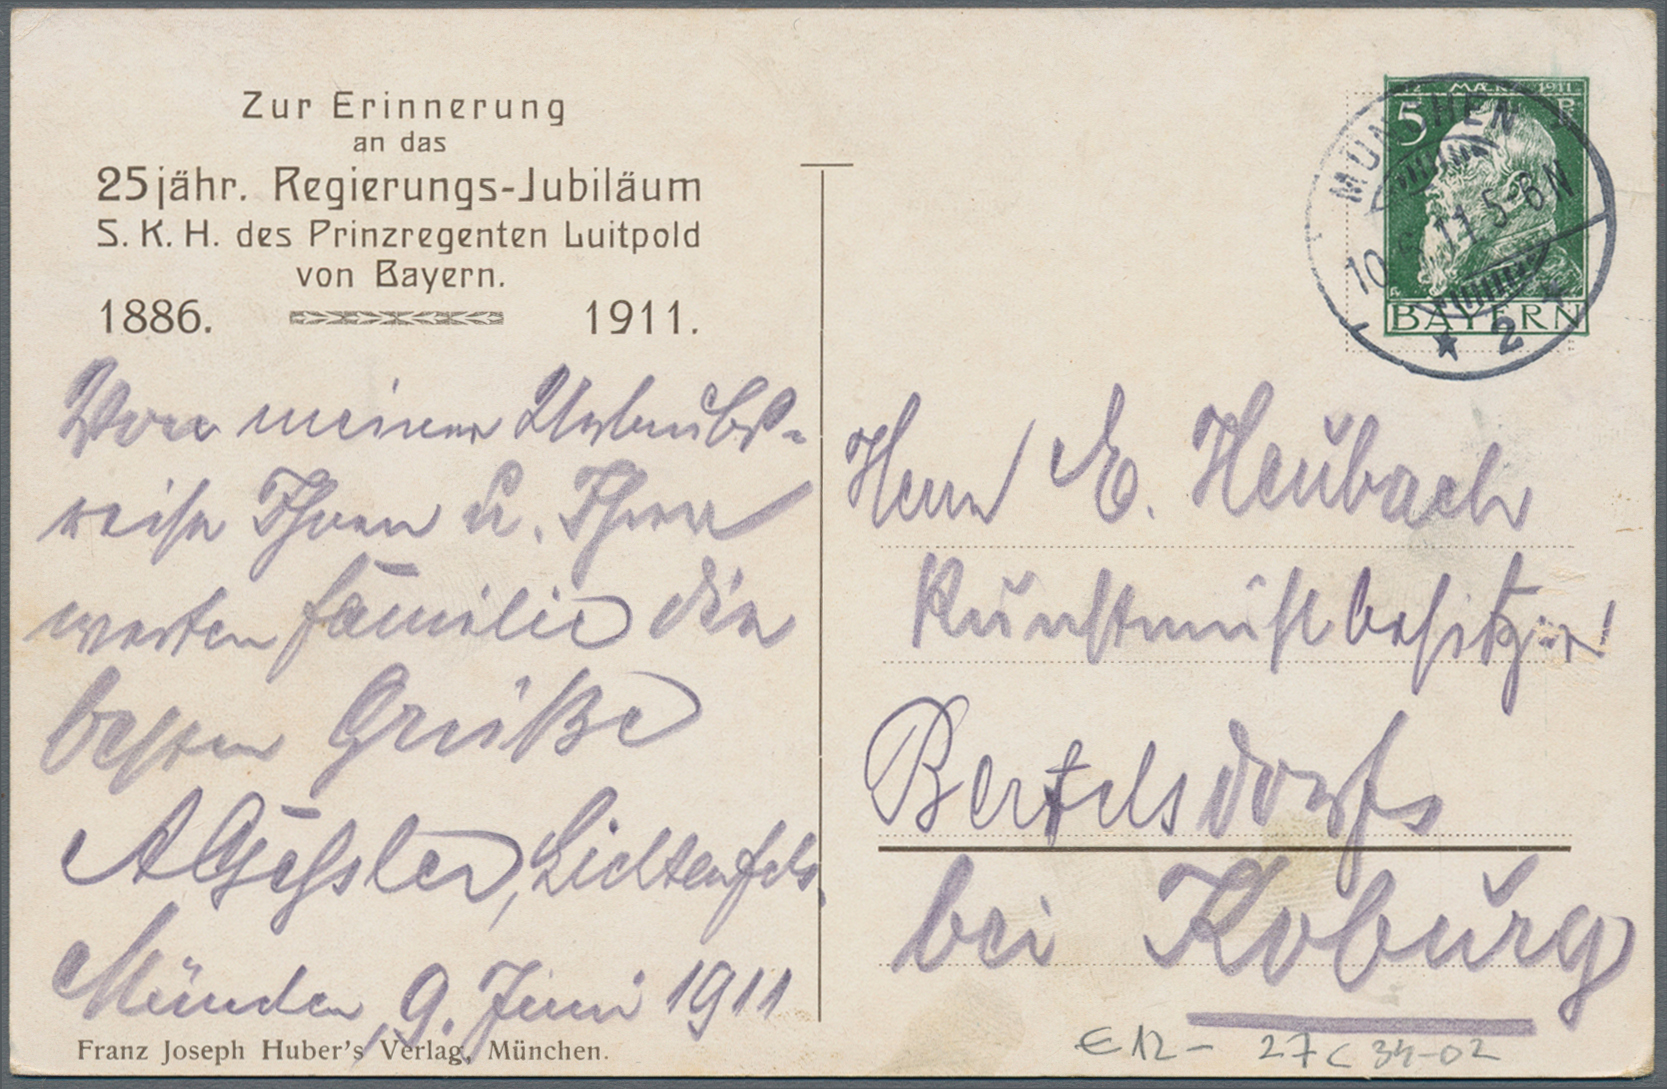 Zur Erinnerung
an das
25jähr. Regierungs-Jubiläum
S. K. H. des Prinzregenten Luitpold
von Bayern.
1886. 1911.
Von meiner Urlaubs-
reise Ihnen u. Ihrer
werten Familie die
besten Grüße
A Geßler, Lichtenfels.
München, 9. Juni 1911
Franz Joseph Huber's Verlag, München.
MÄRZ 1911
5
BAYERN
MÜNCHEN
10 6 11 5-6 N
* 2 *
Herrn E. Heubach
Kunstmühlbesitzer
Bertelsdorf
bei Koburg
€ 12- 27C 34-02